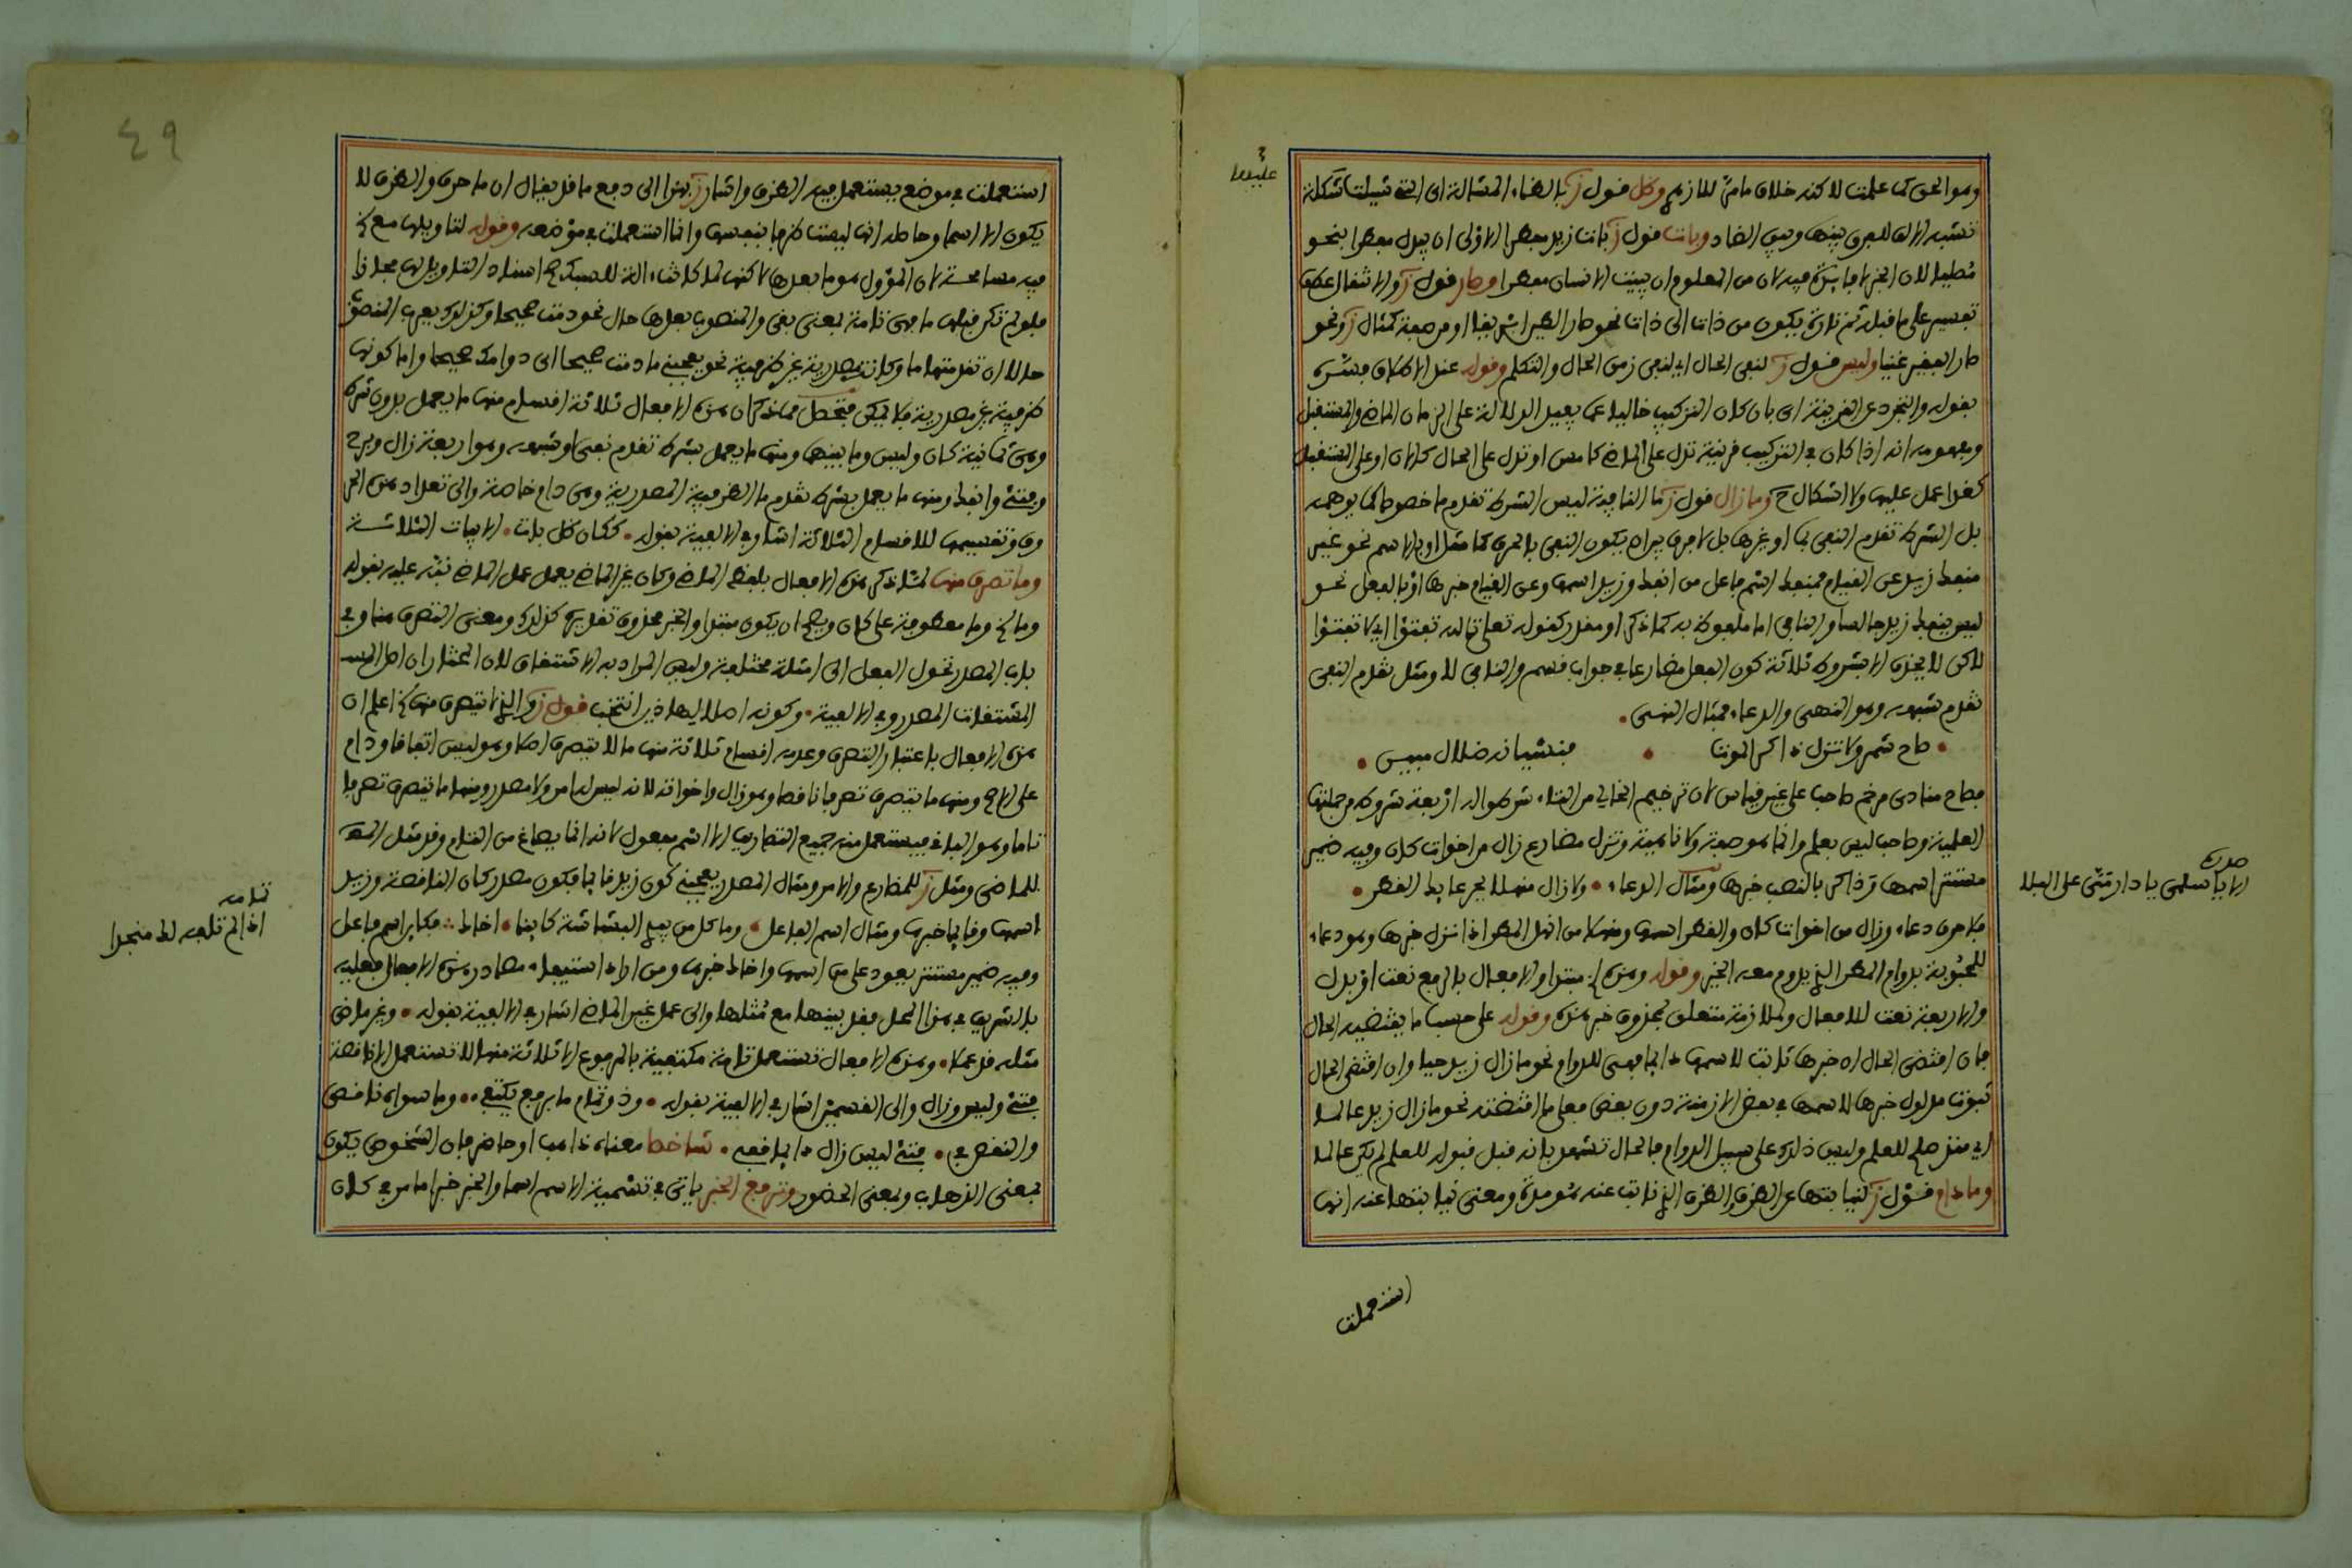 وهو الحق كما علمت لاكنه خلاف ما مر للازهري وظل قول ز بالظاء المشالة اي التي شيلت شكلة
تشبه الالف للفرق بينها وبين الضاد وبات قول ز بات زيد مفطرا الاولى ان يبدل مفطرا بنحو
مصليا لان الخبر لا فائدة فيه لان من المعلوم ان يبيت الانسان مفطرا وصار قول ز والانتقال عطف
تفسير على ما قبله ثم تارة يكون من ذات الى ذات نحو صار الطين ابريقا او من صفة كمثال ز ونحو
صار الفقير غنيا وليس قول ز لنفي الحال اي لنفي زمن الحال والتكلم وقوله عند الاطلاق فسره
بقوله والتجرد عن القرينة اي بان كان التركيب خاليا عما يفيد الدلالة على الزمان الماضي والمستقبل
ومفهومه انه اذا كان في التركيب قرينة تدل على الماضي كامس او تدل على الحال كالان او على المستقبل
كغدا عمل عليها ولا اشكال ح وما زال قول ز ما النافية ليس الشرط تقدم ما خصوصا كما يوهمه
بل الشرط تقدم النفي بما او غيرها بل لا فرق بين ان يكون النفي بالحرف كما مثل او بالاسم نحو غير
منفك زيد عن القيام فمنفك اسم فاعل من انفك وزيد اسمها وعن القيام خبرها او بالفعل نحو
ليس ينفك زيد جالسا والنافي اما ملفوظ به كما ذكر او مقدر كقوله تعلى تالله تفتؤا اي لا تفتؤا
لاكن لا يحذف الا بشروط ثلاثة كون الفعل مضارعا في جواب قسم والنافي لا ومثل تقدم النفي
تقدم شبهه وهو النهي والدعاء فمثال النهي
صاح شمر ولا تزل ذاكر الموت فنسيانه ضلال مبين
فصاح منادى مرخم صاحب على غير قياس لان ترخيم الخالي من التاء شرطوا له اربعة شروط من جملتها
العلمية وصاحب ليس بعلم وانما هو صفة ولا ناهية وتزل مضارع زال من اخوات كان وفيه ضمير
مستتر اسمها وذاكر بالنصب خبرها ومثال الدعاء ولا زال منهلا بجرعائك القطر
فلا حرف دعاء وزال من اخوات كان والقطر اسمها ومنهلا من انهل المطر اذا نزل خبرها وهو دعاء
للمحبوبة بدوام المطر الذي يدوم معه الخير وقوله وهذه الخ مبتدا والافعال بالرفع نعت او بدل
والاربعة نعت للافعال ولملازمة متعلق بمحذوف خبر هذه وقوله على حسب ما يقتضيه الحال
فان اقتضى الحال ان خبرها ثابت لاسمها دايما فهي للدوام نحو ما زال زيد حيا وان اقتضى الحال
ثبوت مدلول خبرها لاسمها في بعض الازمنة دون بعض فعلى ما اقتضته نحو ما زال زيد عالما
اي منذ صلح للعلم وليس ذلك على سبيل الدوام فالحال تشهد بانه قبل قبوله للعلم لم يكن عالما
وما دام قول ز لنيابتها عن الظرف والظرف الذي نابت عنه هو مدة ومعنى نيابتها عنه انها
استعملت
عليهما
صدره
الا يا اسلمي يا دار مي على البلا
٤٩
استعملت في موضع يستعمل فيه الظرف واشار ز بهذا الى دفع ما قد يقال ان ما حرف والظرف لا
يكون الا اسما وحاصله انها ليست ظرفا بنفسها وانما استعملت في موضعه وقوله لتاويلها مع الخ
فيه مسامحة لان المؤول هو ما بعدها لاكنها لما كانت الة للسبك صح اسناد التاويل لها مجازا
فلو لم تذكر قبلها ما فهي تامة بمعنى بقي والمنصوب بعدها حال نحو دمت صحيحا وكذلك يعرب المنصوب
حالا ان تقدمتها ما وكانت مصدرية غير ظرفية نحو يعجبني ما دمت صحيحا اي دوامك صحيحا واما كونها
ظرفية غير مصدرية فلا يمكن فتحصل مما ذكر ان هذه الافعال ثلاثة اقسام منها ما يعمل بدون شرط
وهي ثمانية كان وليس وما بينهما ومنها ما يعمل بشرط تقدم نفي او شبهه وهو اربعة زال وبرح
وفتئ وانفك ومنها ما يعمل بشرط تقدم ما الظرفية المصدرية وهي دام خاصة والى تعداد هذه الحر
وف وتقسيمها للاقسام الثلاثة اشار في الالفية بقوله ككان ظل بات الابيات الثلاثة
وما تصرف منها لما ذكر هذه الافعال بلفظ الماضي وكان غير الماضي يعمل عمل الماضي نبه عليه بقوله
وما الخ وما معطوفة على كان ويصح ان يكون مبتدا والخبر محذوف تقديره كذلك ومعنى التصرف هنا وفي
باب المصدر تحول الفعل الى امثلة مختلفة وليس المراد به الاشتقاق لان المختار ان اصل
المشتقات المصدر وفي الالفية وكونه اصلا لهاذين انتخب قول ز والذي يتصرف منها الخ اعلم ان
هذه الافعال باعتبار التصرف وعدمه اقسام ثلاثة منها ما لا يتصرف اصلا وهو ليس اتفاقا ودام
على الاصح ومنها ما يتصرف تصرفا ناقصا وهو زال واخواته لانه ليس لها امر ولا مصدر ومنها ما يتصرف تصرفا
تاما وهو الباقي فيستعمل منه جميع التصاريف الا اسم مفعول لانه انما يصاغ من التام وقد مثل
للماضي ومثل ز للمضارع والامر ومثال المصدر يعجبني كون زيد قايما فكون مصدر كان الناقصة وزيد
اسمها وقايما خبرها ومثال اسم الفاعل وما كل من يبدي البشاشة كاينا اخاك فكاين اسم فاعل
وفيه ضمير مستتر يعود على من اسمها واخاك خبرها ومن اراد استيفاء مصادر هذه الافعال فعليه
بالشريف في هذا المحل فقد بينها مع مثلها والى عمل غير الماضي اشار في الالفية بقوله وغير ماض
مثله قد عملا وهذه الافعال تستعمل تامة مكتفية بالمرفوع الا ثلاثة منها لا تستعمل الا ناقصة
فتئ وليس وزال والى القسمين اشار في الالفية بقوله وذو تمام ما برفع يكتفي وما سواه ناقص
والنقص في فتئ ليس زال دايما قفي شاخصا معناه ذاهب او حاضر فان الشخوص يكون
بمعنى الذهاب وبمعنى الحضور وترفع الخبر ياتي في تسمية الاسم اسما والخبر خبرا ما مر في كان
تمامه
اذا لم تلفه لك منجدا